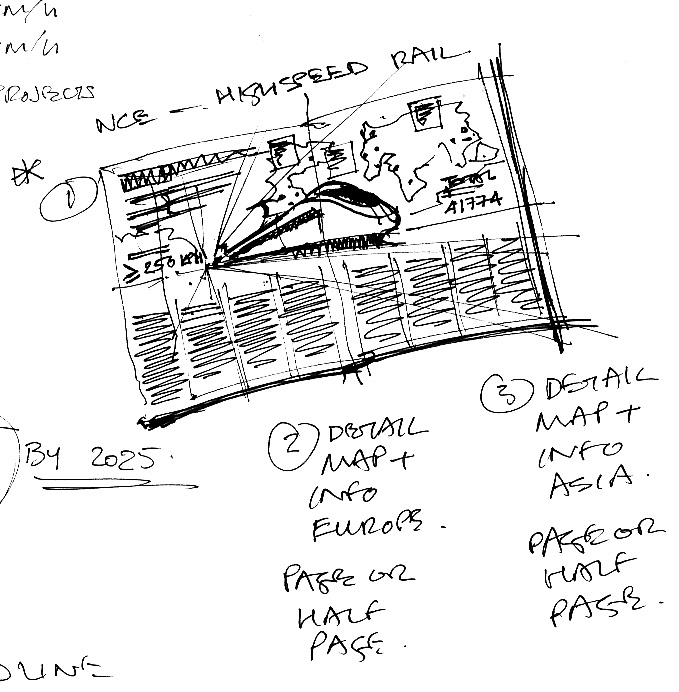 M/H
M/H
PROJECTS
NCE — HIGHSPEED RAIL
1
≥ 250 KPH
TOTAL
41774
BY 2025.
2 DETAIL
MAP +
INFO
EUROPE.
PAGE OR
HALF
PAGE.
3 DETAIL
MAP +
INFO
ASIA.
PAGE OR
HALF
PAGE.